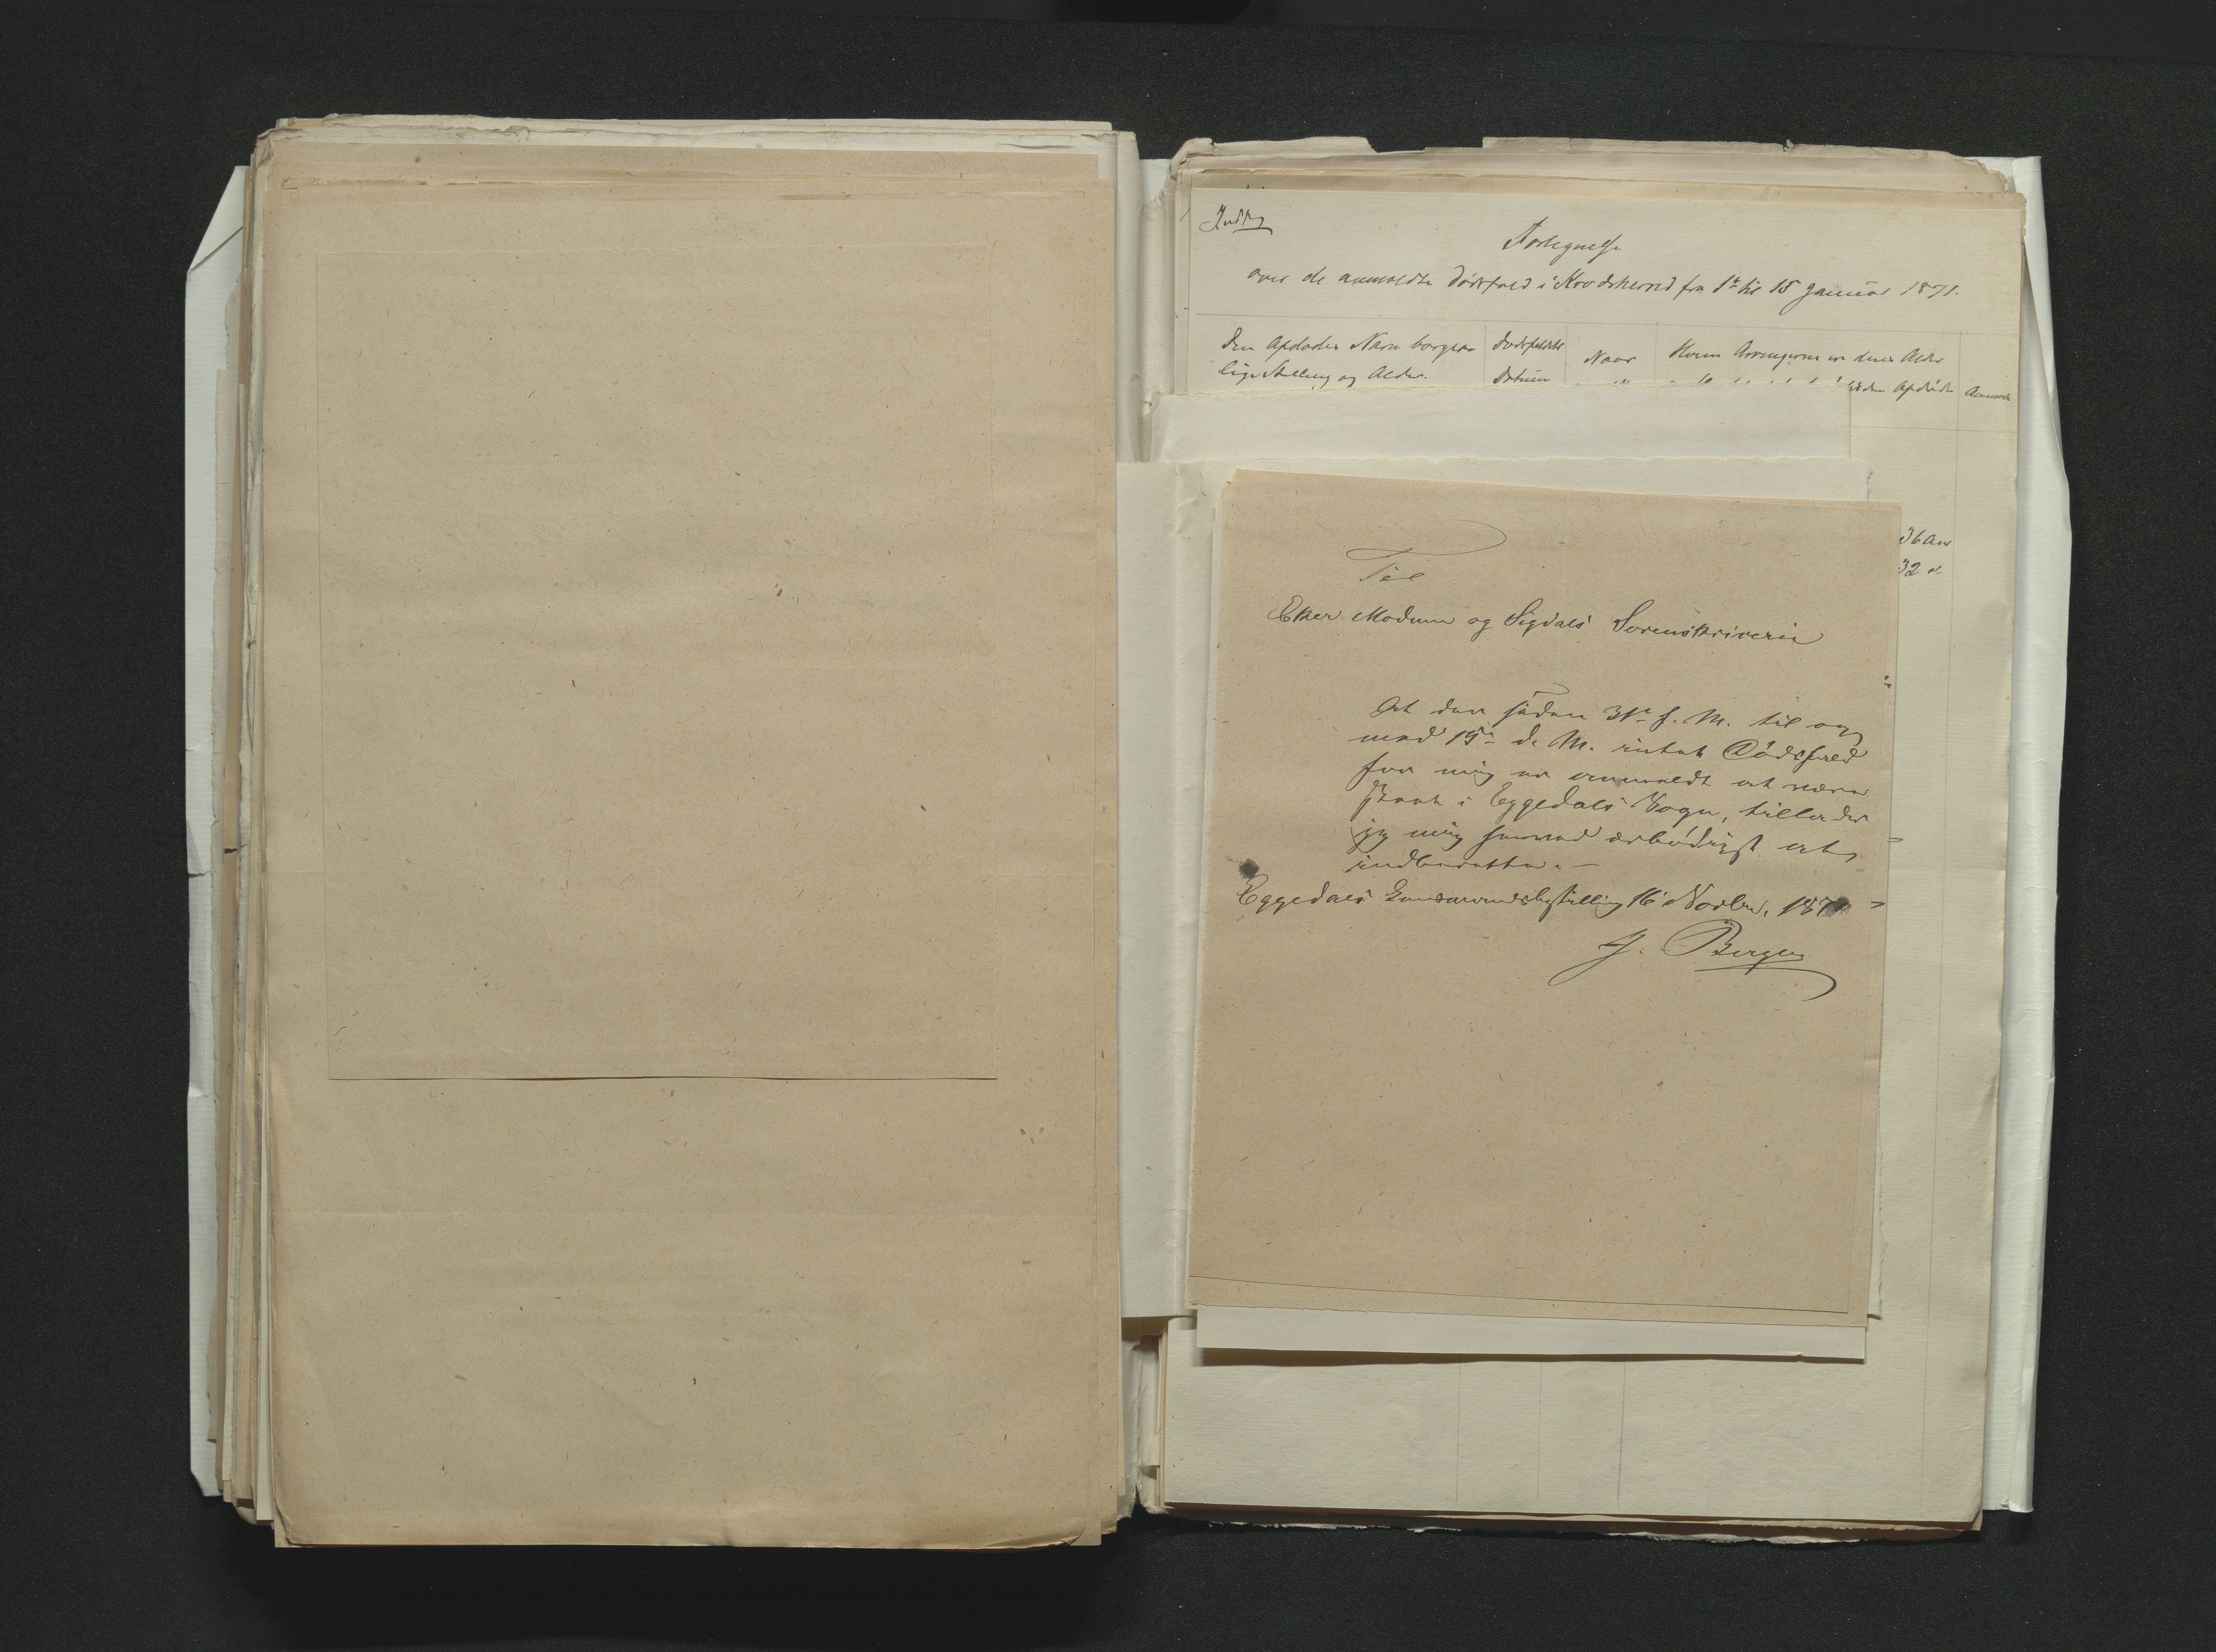 Fortegnelse
over de anmeldte Dødsfald i Krødsherred fra 1ste til 15 Januar 1871.
Den Afdødes Navn borger-
lige Stilling og Alder.
Dødsfaldets
Datum
Naar
Hvem Arvingerne er deres Alder
den Afdøde
Anmærk
36 Aar
32 "
Til
Eker Modum og Sigdals Sorenskriveri
At der siden 31te f. M. til og
med 15de d. M. intet Dødsfald
for mig er anmeldt at være
skeet i Eggedals Sogn, tillader
jeg mig herved ærbødigst at
indberette.-
Eggedals Lensmandsbestilling 16 Novbr. 1871
Bergen